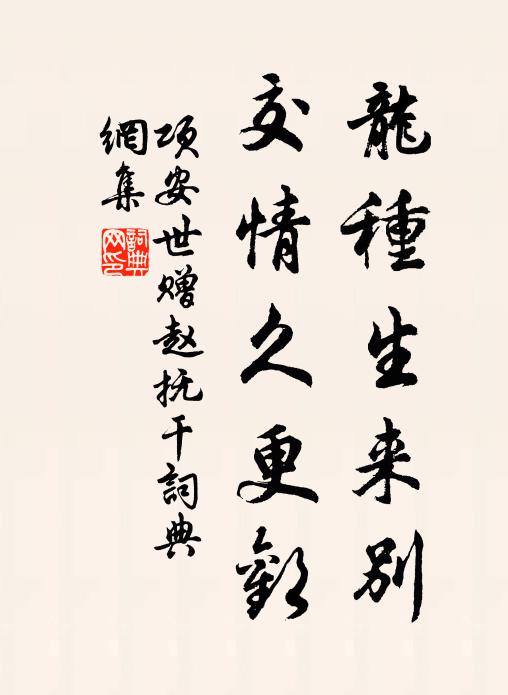 龍種生来别
交情久更歡
項安世赠赵抚干詞典
網集
詞典網印